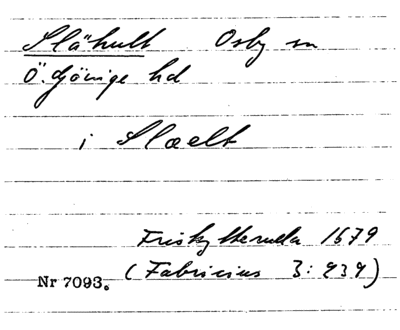 Slähult Osby sn
Ö. Göinge hd
i Slælt
Friskytterulla 1679
Nr 7093. (Fabricius 3: 239)